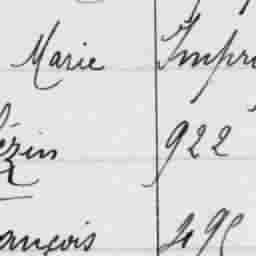 Marie Impri
ézin 922
ançois 495